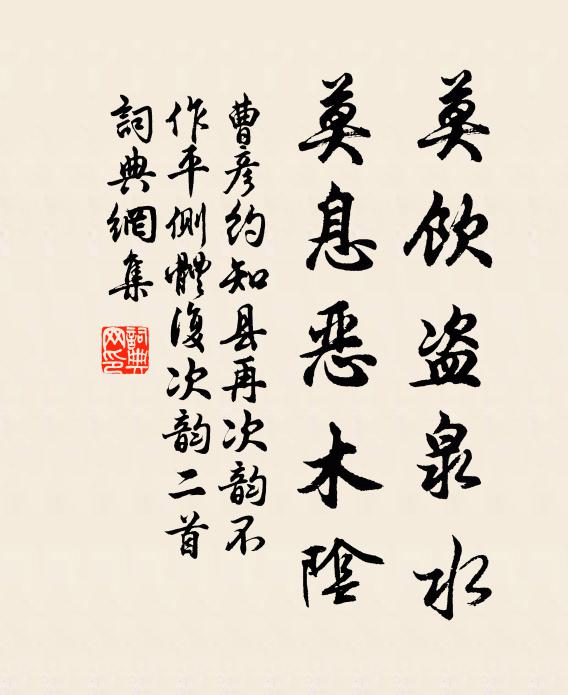 莫飲盗泉水
莫息恶木陰
曹彦约知县再次韵不
作平側體復次韵二首
詞典網集
詞典網印